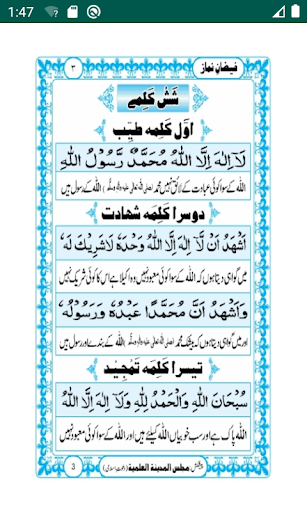 1:47
۳
فیضانِ نماز
شَش کَلِمے
اَوَّل کَلِمَہ طَیِّب
لَآ اِلٰهَ اِلَّا اللّٰهُ مُحَمَّدٌ رَّسُوْلُ اللّٰهِ
اللہ کے سوا کوئی عبادت کے لائق نہیں محمد صلی اللہ علیہ وسلم اللہ کے رسول ہیں
دوسرا کَلِمَہ شہادت
اَشْهَدُ اَنْ لَّآ اِلٰهَ اِلَّا اللّٰهُ وَحْدَهٗ لَاشَرِيْكَ لَهٗ
میں گواہی دیتا ہوں کہ اللہ کے سوا کوئی معبود نہیں وہ اکیلا ہے اس کا کوئی شریک نہیں
وَاَشْهَدُ اَنَّ مُحَمَّدًا عَبْدُهٗ وَرَسُوْلُهٗ
اور میں گواہی دیتا ہوں کہ بیشک محمد صلی اللہ علیہ وسلم اللہ کے بندے اور رسول ہیں
تیسرا کَلِمَہ تَمْجِیْد
سُبْحَانَ اللّٰهِ وَالْحَمْدُ لِلّٰهِ وَلَآ اِلٰهَ اِلَّا اللّٰهُ
اللہ پاک ہے اور سب خوبیاں اللہ کیلئے ہیں اور اللہ کے سوا کوئی معبود نہیں
3
پیشکش: مجلس المدینۃ العلمیۃ (دعوتِ اسلامی)